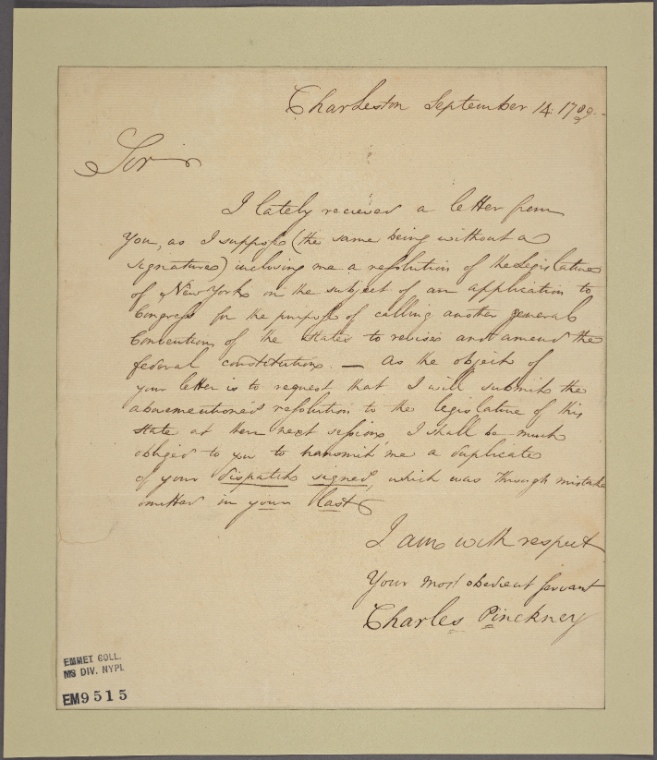 Charleston September 14. 1789.
Sir
I lately recieved a letter from
You, as I suppose (the same being without a
signature) inclosing me a resolution of the Legislature
of New York on the subject of an application to
Congress for the purpose of calling another general
Convention of the states to revise and amend the
federal constitution — As the object of
your letter is to request that I will submit the
abovementioned resolution to the legislature of this
state at their next session, I shall be much
obliged to you to transmit me a duplicate
of your dispatch signed, which was through mistake
omitted in your last
I am with respect
Your most obedient servant
Charles Pinckney
EMMET COLL.
MS DIV. NYPL
EM9515